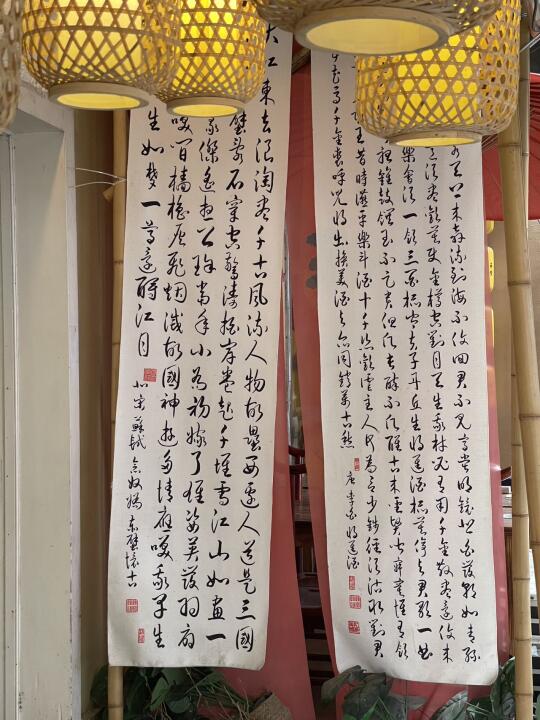 天上來奔流到海不復回君不見高堂明鏡悲白髮朝如青絲
須盡歡莫使金樽空對月天生我材必有用千金散盡還復來
樂會須一飲三百杯岑夫子丹丘生將進酒杯莫停與君歌一曲
鐘鼓饌玉不足貴但願長醉不復醒古來聖賢皆寂寞惟有飲
王昔時宴平樂斗酒十千恣歡謔主人何為言少錢徑須沽取對君
花馬千金裘呼兒將出換美酒與爾同銷萬古愁
唐李白將進酒
大江東去浪淘盡千古風流人物故壘西邊人道是三國
壁亂石穿空驚濤拍岸卷起千堆雪江山如畫一
豪傑遙想公瑾當年小喬初嫁了雄姿英發羽扇
笑間檣櫓灰飛烟滅故國神遊多情應笑我早生
生如夢一尊還酹江月
北宋蘇軾念奴嬌赤壁懷古